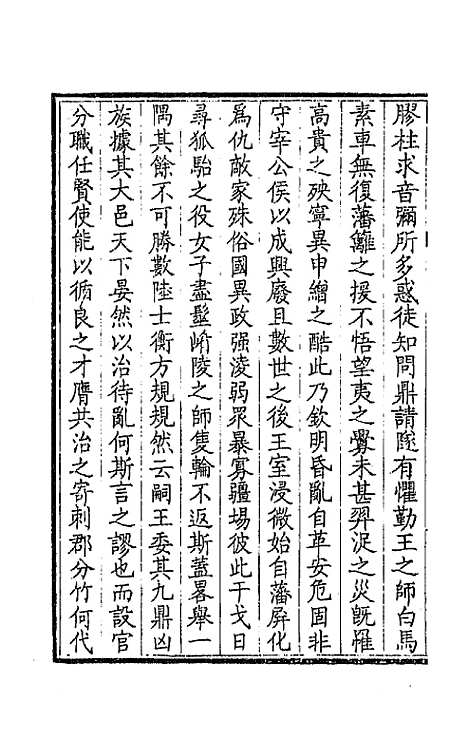 膠柱求音彌所多惑徒知問鼎請隧有懼勤王之師白馬
素車無復藩籬之援不悟望夷之釁未甚羿浞之災旣罹
高貴之殃寧異申繒之酷此乃欽明昏亂自革安危固非
守宰公侯以成興廢且數世之後王室浸微始自藩屏化
爲仇敵家殊俗國異政强淩弱眾暴寡疆埸彼此干戈日
尋狐駘之役女子盡髽崤陵之師隻輪不返斯蓋畧舉一
隅其餘不可勝數陸士衡方規規然云嗣王委其九鼎凶
族據其大邑天下晏然以治待亂何斯言之謬也而設官
分職任賢使能以循良之才膺共治之寄刺郡分竹何代